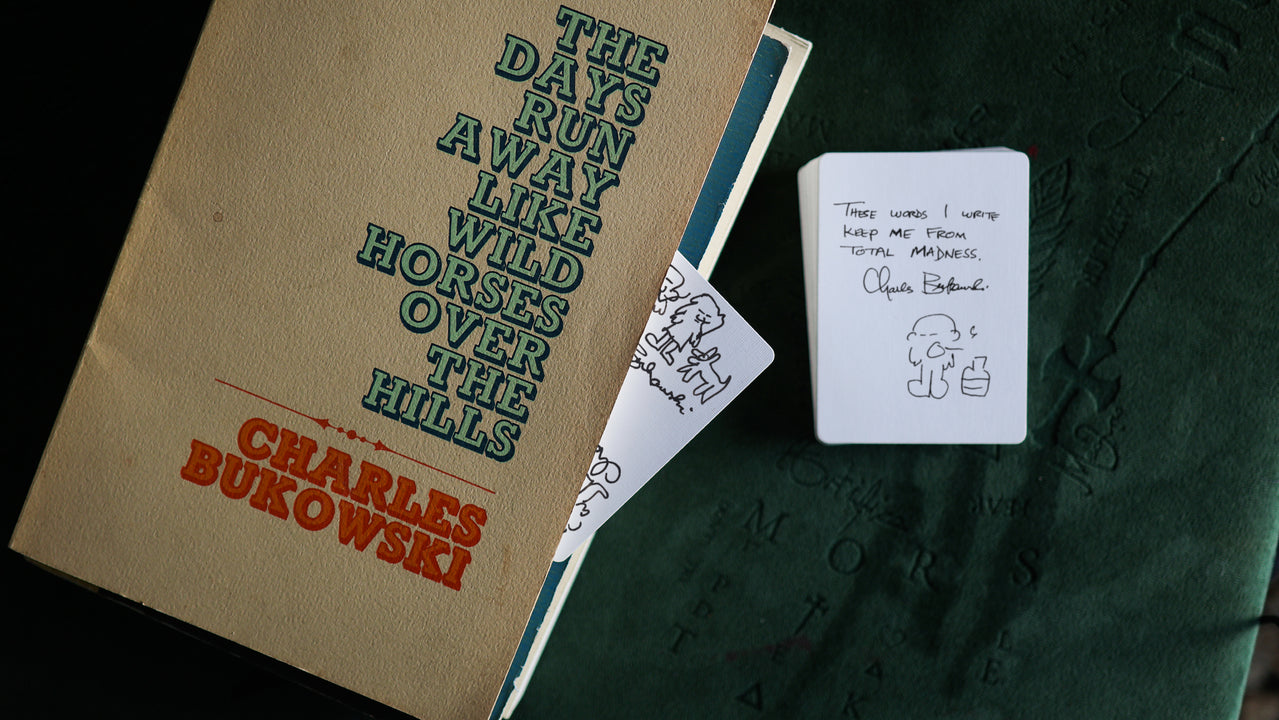 THE
DAYS
RUN
AWAY
LIKE
WILD
HORSES
OVER
THE
HILLS
CHARLES
BUKOWSKI
Bukowski.
THESE WORDS I WRITE
KEEP ME FROM
TOTAL MADNESS.
Charles Bukowski.
MORS